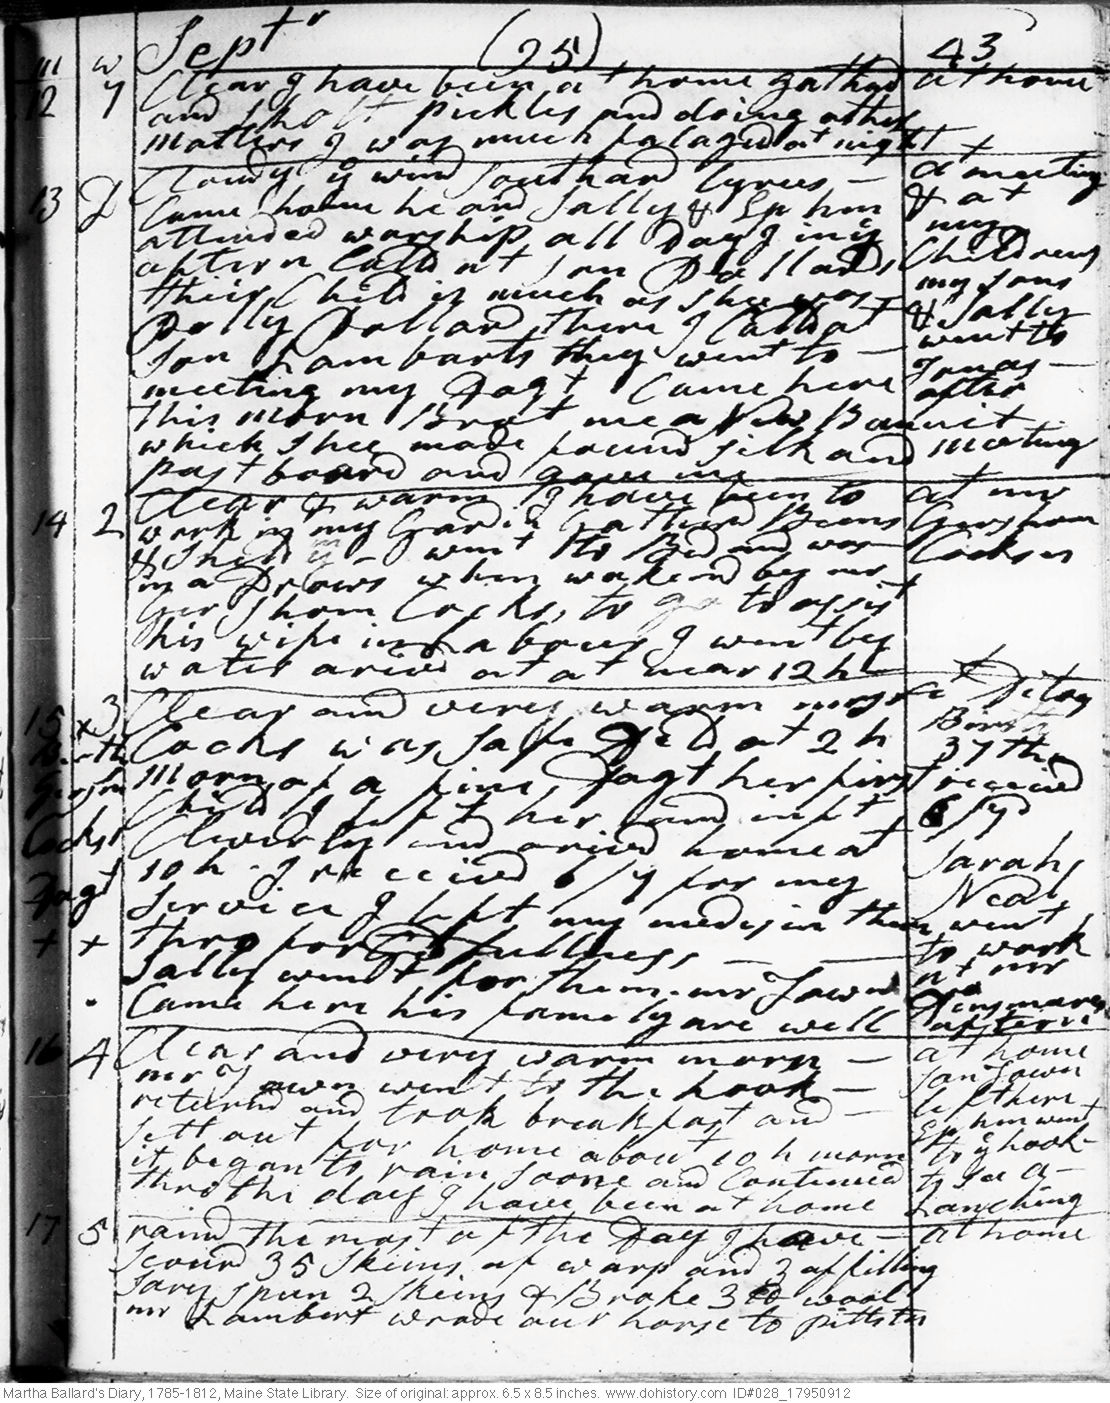 m w Sept r (25) 43
12 7 Clear I have been at home gatherd at home
and pickles and doing other
matters I was much fatagud at night +
13 D Clowdy ye wind Southard Cyrus – at meeting
Came home he and Sally & Ephm & at
attended worship all Day I in ye my
aftern Calld at son Pollards Childrens
their Child is much as shee was – my sons
Dolly Pollard there I Calld at & Sally
son Lambarts they went to – went to
meeting my Dagt Came here Jonas –
this morn Brot me a New Bonnit after
which shee made found silk and meeting
past board and gave me –
14 2 Clear & warm I have been to at mr
work in my Gardin Gatherd Beens Gershom
& Shelld ye – went to Bed and was Cockses
in a Drows when wakend by mr
Gershom Cocks, to go to assist
his wife in Labour I went by
water arivd at at near 12 h – +
15 x 3 Clear and very warm mrs at Ditoes
Birth Cocks was safe Dld at 2 h Birth
Gershm morn of a fine Dagt her first 37th
Cocks Child I left her and inft received
Cleverly and arivd home at 6/ yd
Dagt 10 h. I received 6/ y for my Sarah
service I left my medisin there Neal
+ + thro forgitfullness – – went
Sally went for them. mr Town to work
Came here his famely are well at mr
Densmores
aftern
16 4 Clear and very warm morn – at home
mr Town went to the hook – son Town
returnd and took breakfast and – left here
sett out for home about 10 h morn Ephm went
it began to rain soone and Continued to ye hook
thro the day I have been at home to see a –
Lanching
17 5 raind the most of the Day I have – at home
scourd 35 skeins of warp and 3 of filling
Sary spun 2 skeins & Broke 3 lb wool
mr Lambert wrode our horse to pittston
Martha Ballard's Diary, 1785-1812, Maine State Library. Size of original: approx. 6.5 x 8.5 inches. www.dohistory.com ID#028_17950912